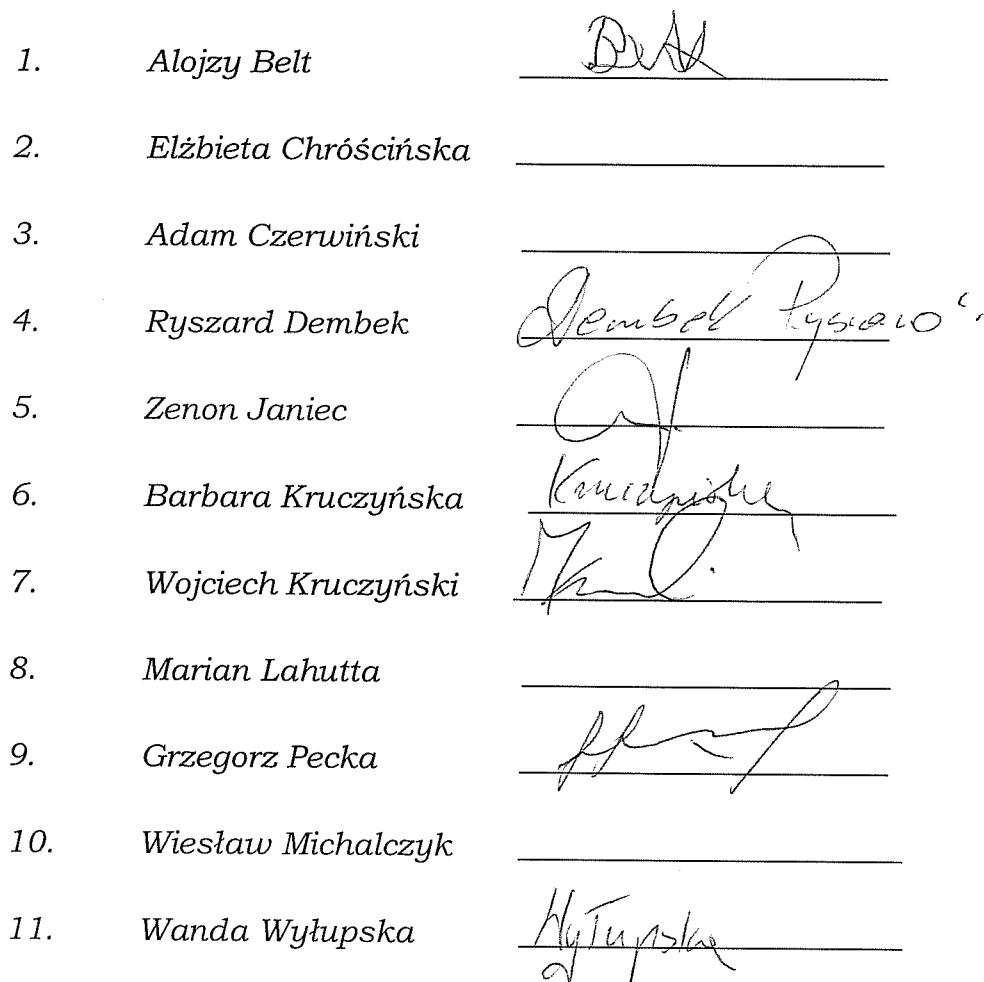 1. Alojzy Belt Belt
2. Elżbieta Chróścińska
3. Adam Czerwiński
4. Ryszard Dembek Dembek
5. Zenon Janiec
6. Barbara Kruczyńska
7. Wojciech Kruczyński
8. Marian Lahutta
9. Grzegorz Pecka
10. Wiesław Michalczyk
11. Wanda Wyłupska Wyłupska